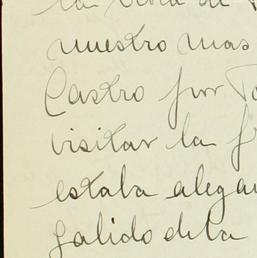 la
nuestro mas
Castro por
visitar la
estaba
salido de la